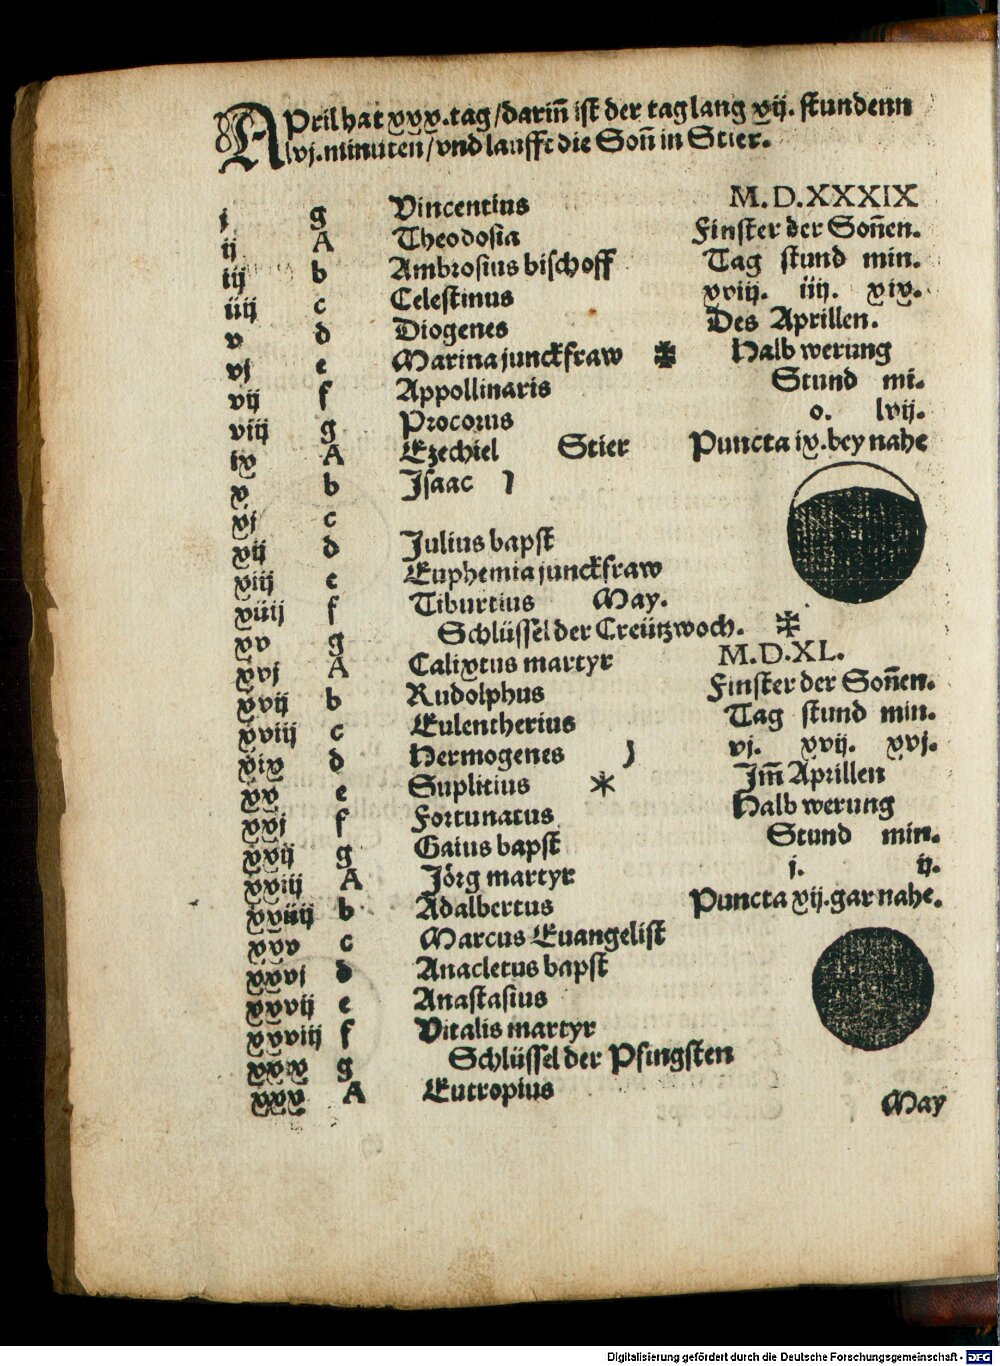 APril hat xxx. tag/darin̄ ist der tag lang xij. stundenn
lvj. minuten/vnd laufft die Son̄ in Stier.
j g Vincentius M.D.XXXIX
ij A Theodosia Finster der Son̄en.
iij b Ambrosius bischoff Tag stund min.
iiij c Celestinus xviij. iiij. xix.
v d Diogenes Des Aprillen.
vj e Marina junckfraw ✠ Halb werung
vij f Appollinaris Stund mi.
viij g Procorus o. lvij.
ix A Ezechiel Stier Puncta ix. bey nahe
x b Isaac
xj c
xij d Julius bapst
xiij e Euphemia junckfraw
xiiij f Tiburtius May.
xv g Schlüssel der Creützwoch. ✠
xvj A Calixtus martyr M.D.XL.
xvij b Rudolphus Finster der Son̄en.
xviij c Eulentherius Tag stund min.
xix d Hermogenes vj. xvij. xvj.
xx e Suplitius * Im̄ Aprillen
xxj f Fortunatus Halb werung
xxij g Gaius bapst Stund min.
xxiij A Jörg martyr j. ij.
xxiiij b Adalbertus Puncta xij. gar nahe.
xxv c Marcus Euangelist
xxvj d Anacletus bapst
xxvij e Anastasius
xxviij f Vitalis martyr
xxix g Schlüssel der Pfingsten
xxx A Eutropius
May
Digitalisierung gefördert durch die Deutsche Forschungsgemeinschaft - DFG